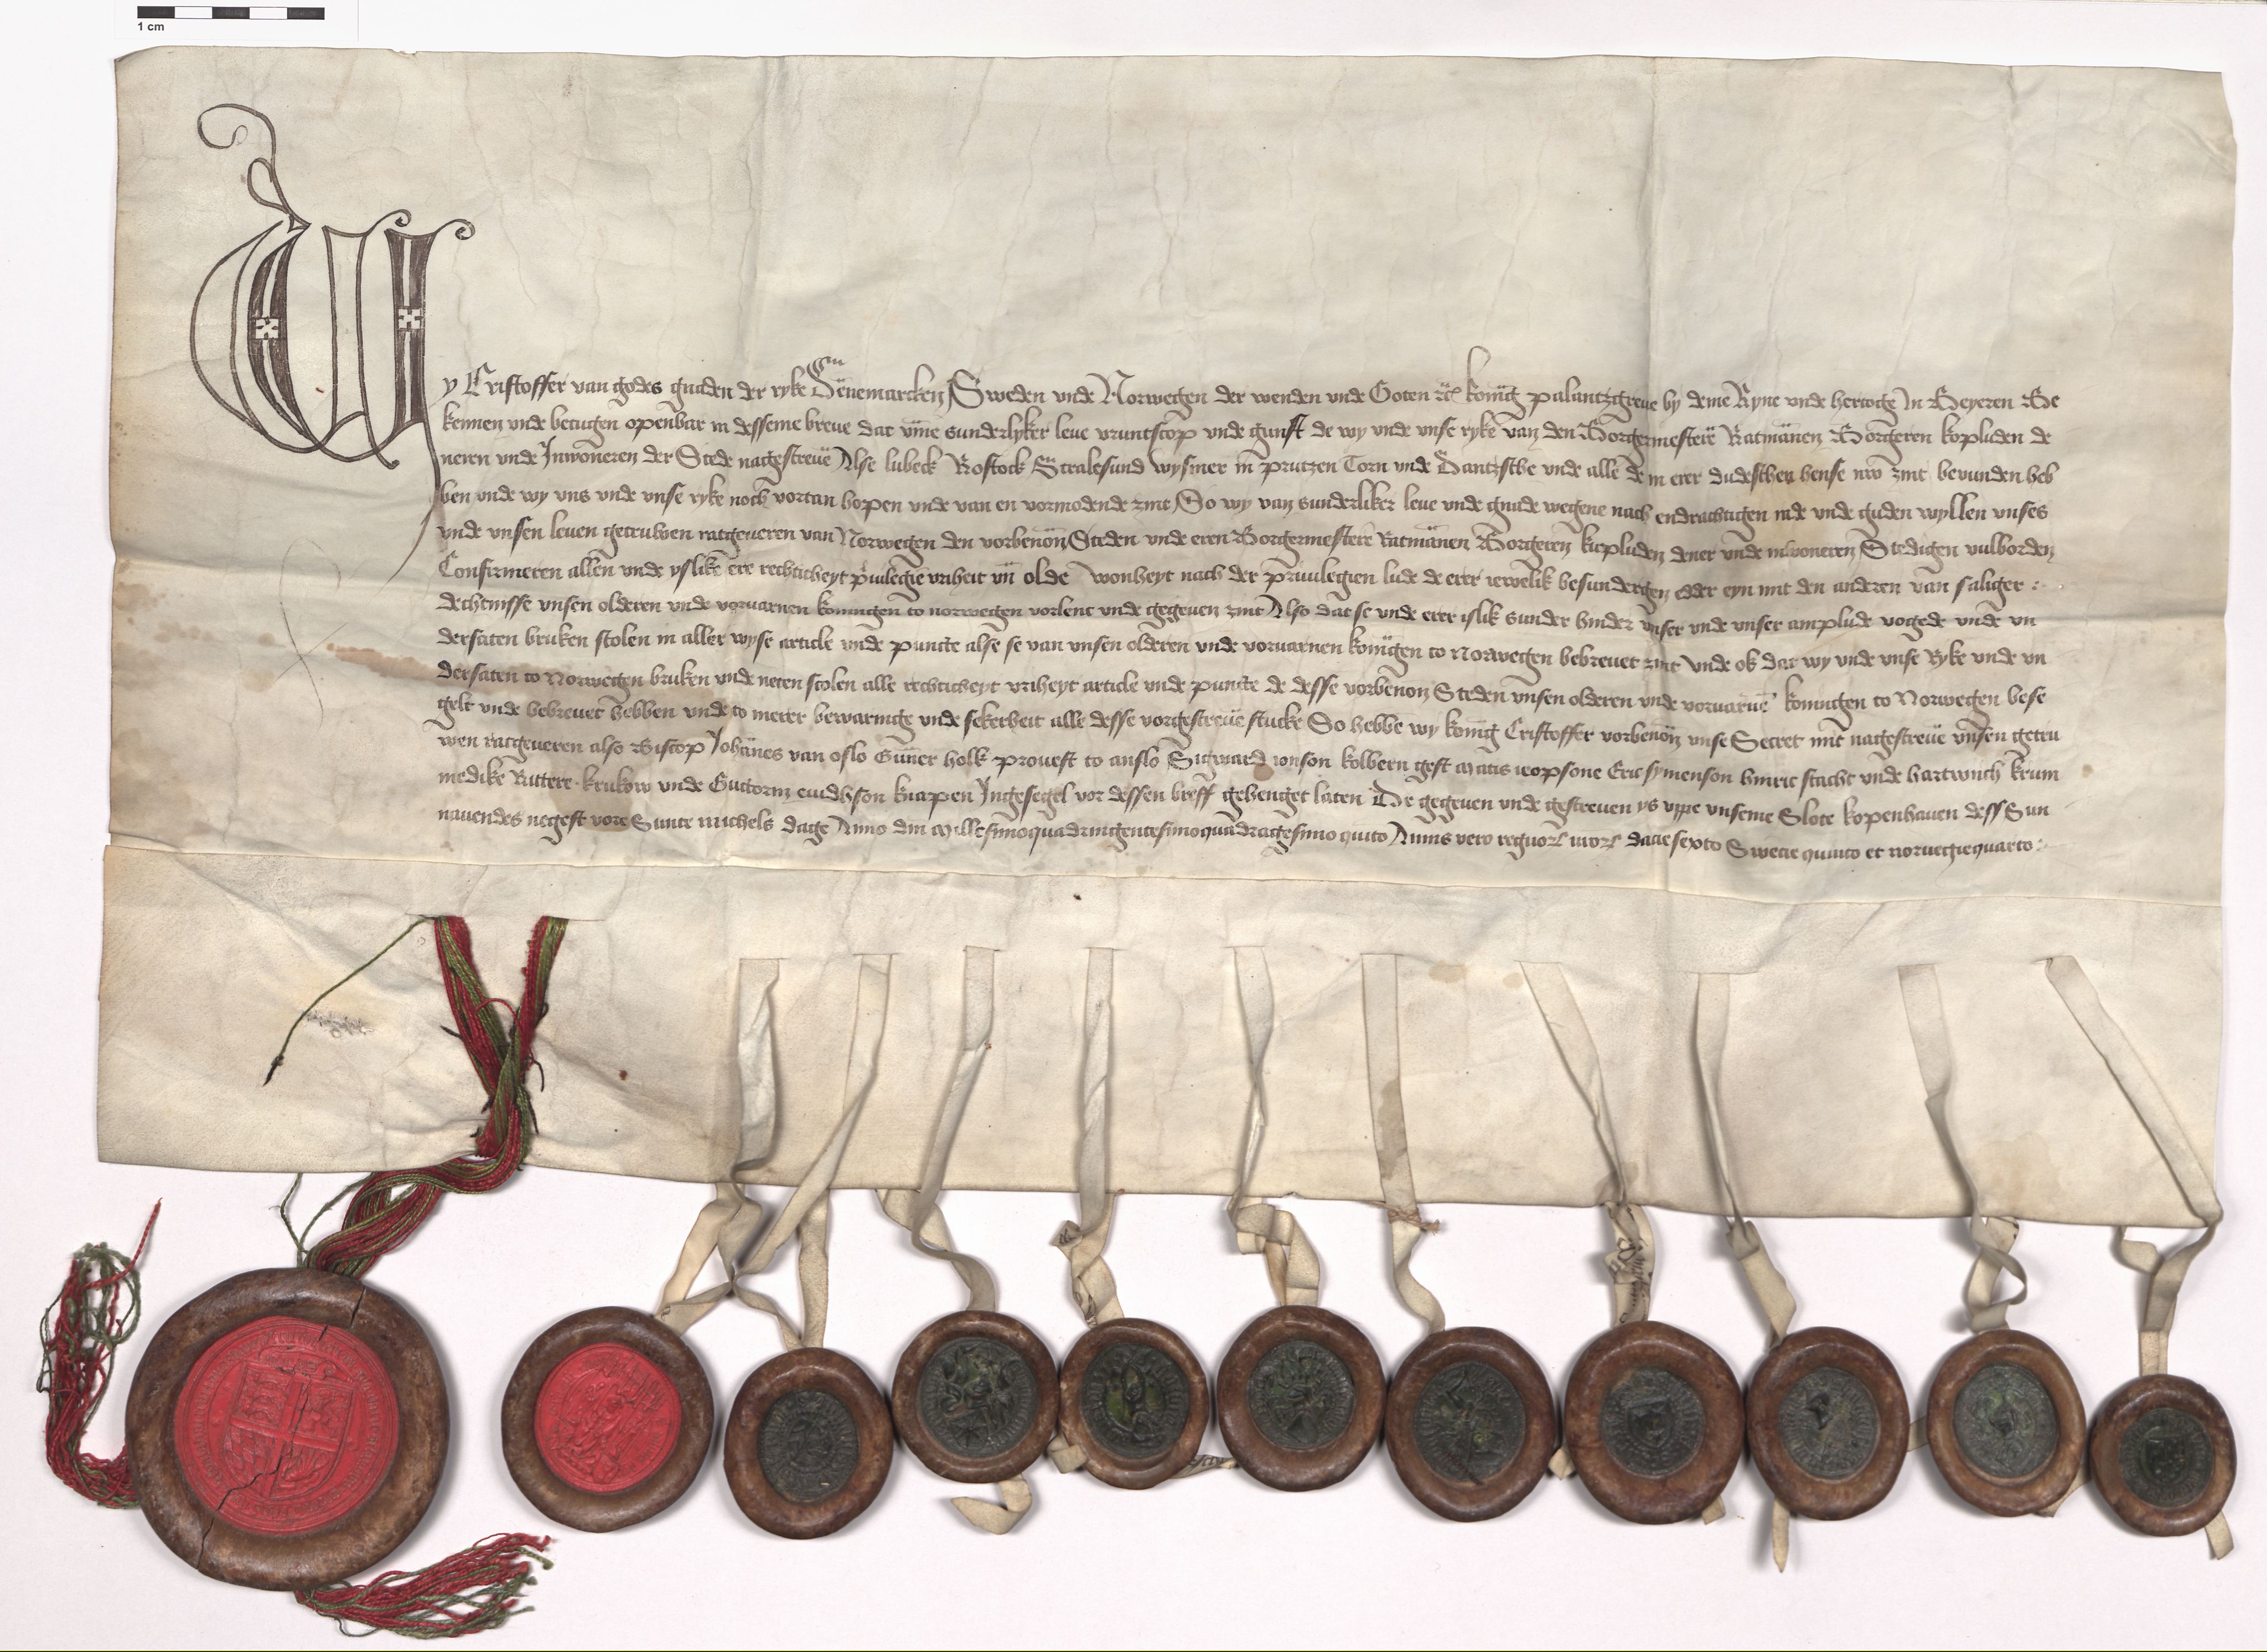 1 cm
Wy Cristoffer van godes gnaden der ryke Denemarcken Sweden vnde Norwegen der wenden vnde Goten koni̅g palantzgreue by deme Ryne vnde hertoge In Beyeren Be
kennen vnde betugen openbar in desseme breue dat vm̅e sunderlyker leue vruntscop vnde gunst de wy vnde vnse ryke van den Borgermestere̅ Ratma̅nen Borgeren kopluden de
neren vnde Inwoneren der Stede nagescreue̅ Alse lubeck Rostock Stralesund wysmer in prutzen Torn vnde Dantzsche vnde alle de in erer dudesschen hense nw zint beuunden heb
ben vnde wy vns vnde vnse ryke noch vortan hopen vnde van en vormodende zint So wy van sunderliker leue vnde gnade wegene nach endrachtigen rade vnde guden wyllen vnses
vnde vnsen leuen getruwen ratgeueren van Norwegen den vorbeno̅n Steden vnde eren Borgermestere Ratma̅nen Borgeren kopluden dener vnde inwoneren Stedigen vulborden
Confirmeren allen vnde yslike̅ ere rechticheyt p̅uilegie̅ vriheit vn̅ olde wonheyt nach der priuilegien lude de erer iewelik besundergen edder eyn mit den anderen van saliger
dechtnisse vnsen olderen vnde voruarnen koningen to norwegen vorlent vnde gegeuen zint Also dat se vnde erer islik sunder hinder vnser vnde vnser amplude vogede vnde vn
dersaten bruken scolen in aller wyse article vnde puncte alse se van vnsen olderen vnde voruarnen koni̅gen to Norwegen bebreuet zint vnde ok dat wy vnde vnse Ryke vnde vn
dersaten to Norwegen bruken vnde neten scolen alle rechticheyt vriheyt article vnde puncte de desse vorbeno̅n Steden vnsen olderen vnde voruarne̅ koningen to Norwegen bese
gelt vnde bebreuet hebben vnde to merer bewaringe vnde sekerheit alle desse vorgescreue̅ stucke So hebbe wy koni̅g Cristoffer vorbeno̅n vnse Secret mit nagescreue̅ vnsen getru
wen ratgeueren also Biscop Joha̅nes van oslo Gu̅ner holk prouest to anslo Sigward ionson kolbern gest Matis ieopsone Eric symenson hinric scacht vnde hartwich krum
medike Rittere krukow vnde Guttorm euidhson knapen Ingesegel vor dessen breff gehenget laten De gegeuen vnde gescreuen ys vppe vnseme Slote kopenhauen dess Sun
nauendes negest vore Sunte michels dage Anno dm̅ Millesimoquadringentesimoquadragesimo qui̅to Annis vero regnor̅ n̅ror̅ dacie sexto Swecie quinto et norwegie quarto